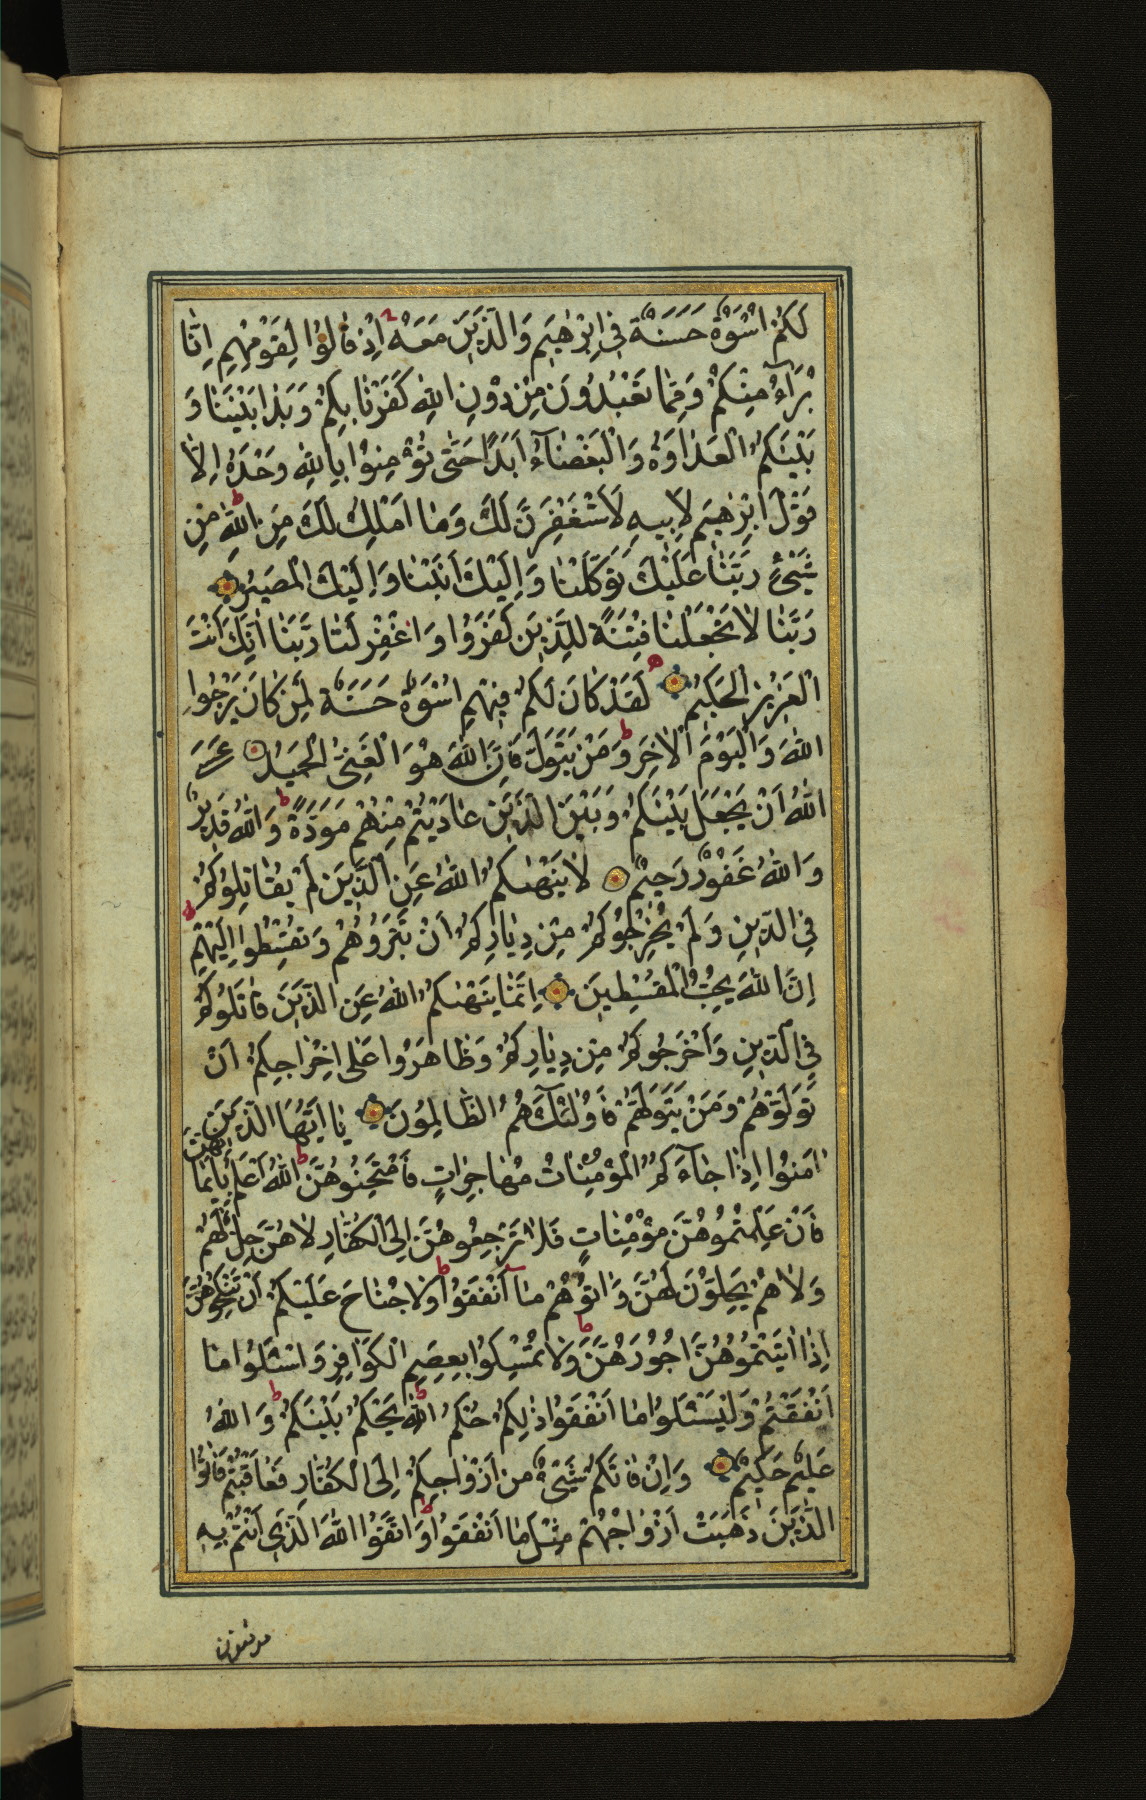 لَكُمْ اُسْوَةٌ حَسَنَةٌ فِي اِبْرٰهِيمَ وَالَّذِينَ مَعَهُ اِذْ قَالُوا لِقَوْمِهِمْ اِنَّا
بُرَآءُ مِنْكُمْ وَمِمَّا تَعْبُدُونَ مِنْ دُونِ اللهِ كَفَرْنَا بِكُمْ وَبَدَا بَيْنَنَا وَ
بَيْنَكُمُ الْعَدَاوَةُ وَالْبَغْضَآءُ اَبَدًا حَتّٰى تُؤْمِنُوا بِاللهِ وَحْدَهُ اِلَّا
قَوْلَ اِبْرٰهِيمَ لِاَبِيهِ لَاَسْتَغْفِرَنَّ لَكَ وَمَا اَمْلِكُ لَكَ مِنَ اللهِ مِنْ
شَيْءٍ رَبَّنَا عَلَيْكَ تَوَكَّلْنَا وَاِلَيْكَ اَنَبْنَا وَاِلَيْكَ الْمَصِيرُ
رَبَّنَا لَا تَجْعَلْنَا فِتْنَةً لِلَّذِينَ كَفَرُوا وَاغْفِرْ لَنَا رَبَّنَا اِنَّكَ اَنْتَ
الْعَزِيزُ الْحَكِيمُ لَقَدْ كَانَ لَكُمْ فِيهِمْ اُسْوَةٌ حَسَنَةٌ لِمَنْ كَانَ يَرْجُوا
اللهَ وَالْيَوْمَ الْاٰخِرَ وَمَنْ يَتَوَلَّ فَاِنَّ اللهَ هُوَ الْغَنِيُّ الْحَمِيدُ عَسَى
اللهُ اَنْ يَجْعَلَ بَيْنَكُمْ وَبَيْنَ الَّذِينَ عَادَيْتُمْ مِنْهُمْ مَوَدَّةً وَاللهُ قَدِيرٌ
وَاللهُ غَفُورٌ رَحِيمٌ لَا يَنْهٰىكُمُ اللهُ عَنِ الَّذِينَ لَمْ يُقَاتِلُوكُمْ
فِي الدِّينِ وَلَمْ يُخْرِجُوكُمْ مِنْ دِيَارِكُمْ اَنْ تَبَرُّوهُمْ وَتُقْسِطُوا اِلَيْهِمْ
اِنَّ اللهَ يُحِبُّ الْمُقْسِطِينَ اِنَّمَا يَنْهٰىكُمُ اللهُ عَنِ الَّذِينَ قَاتَلُوكُمْ
فِي الدِّينِ وَاَخْرَجُوكُمْ مِنْ دِيَارِكُمْ وَظَاهَرُوا عَلٰى اِخْرَاجِكُمْ اَنْ
تَوَلَّوْهُمْ وَمَنْ يَتَوَلَّهُمْ فَاُولٰئِكَ هُمُ الظَّالِمُونَ يَا اَيُّهَا الَّذِينَ
اٰمَنُوا اِذَا جَآءَكُمُ الْمُؤْمِنَاتُ مُهَاجِرَاتٍ فَامْتَحِنُوهُنَّ اللهُ اَعْلَمُ بِاِيمَانِهِنَّ
فَاِنْ عَلِمْتُمُوهُنَّ مُؤْمِنَاتٍ فَلَا تَرْجِعُوهُنَّ اِلَى الْكُفَّارِ لَا هُنَّ حِلٌّ لَهُمْ
وَلَا هُمْ يَحِلُّونَ لَهُنَّ وَاٰتُوهُمْ مَا اَنْفَقُوا وَلَا جُنَاحَ عَلَيْكُمْ اَنْ تَنْكِحُوهُنَّ
اِذَا اٰتَيْتُمُوهُنَّ اُجُورَهُنَّ وَلَا تُمْسِكُوا بِعِصَمِ الْكَوَافِرِ وَاسْئَلُوا مَا
اَنْفَقْتُمْ وَلْيَسْئَلُوا مَا اَنْفَقُوا ذٰلِكُمْ حُكْمُ اللهِ يَحْكُمُ بَيْنَكُمْ وَاللهُ
عَلِيمٌ حَكِيمٌ وَاِنْ فَاتَكُمْ شَيْءٌ مِنْ اَزْوَاجِكُمْ اِلَى الْكُفَّارِ فَعَاقَبْتُمْ فَاٰتُوا
الَّذِينَ ذَهَبَتْ اَزْوَاجُهُمْ مِثْلَ مَا اَنْفَقُوا وَاتَّقُوا اللهَ الَّذِي اَنْتُمْ بِهِ
مؤمنون